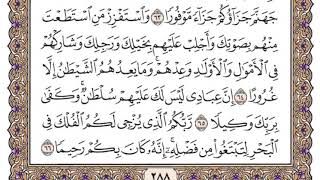 جَهَنَّمَ جَزَآؤُكُمْ جَزَآءً مَّوْفُورًا ٦٣ وَٱسْتَفْزِزْ مَنِ ٱسْتَطَعْتَ
مِنْهُم بِصَوْتِكَ وَأَجْلِبْ عَلَيْهِم بِخَيْلِكَ وَرَجِلِكَ وَشَارِكْهُمْ
فِى ٱلْأَمْوَٰلِ وَٱلْأَوْلَٰدِ وَعِدْهُمْ ۚ وَمَا يَعِدُهُمُ ٱلشَّيْطَٰنُ إِلَّا
غُرُورًا ٦٤ إِنَّ عِبَادِى لَيْسَ لَكَ عَلَيْهِمْ سُلْطَٰنٌ ۚ وَكَفَىٰ
بِرَبِّكَ وَكِيلًا ٦٥ رَّبُّكُمُ ٱلَّذِى يُزْجِى لَكُمُ ٱلْفُلْكَ فِى
ٱلْبَحْرِ لِتَبْتَغُوا۟ مِن فَضْلِهِۦٓ ۚ إِنَّهُۥ كَانَ بِكُمْ رَحِيمًا ٦٦
٢٨٨